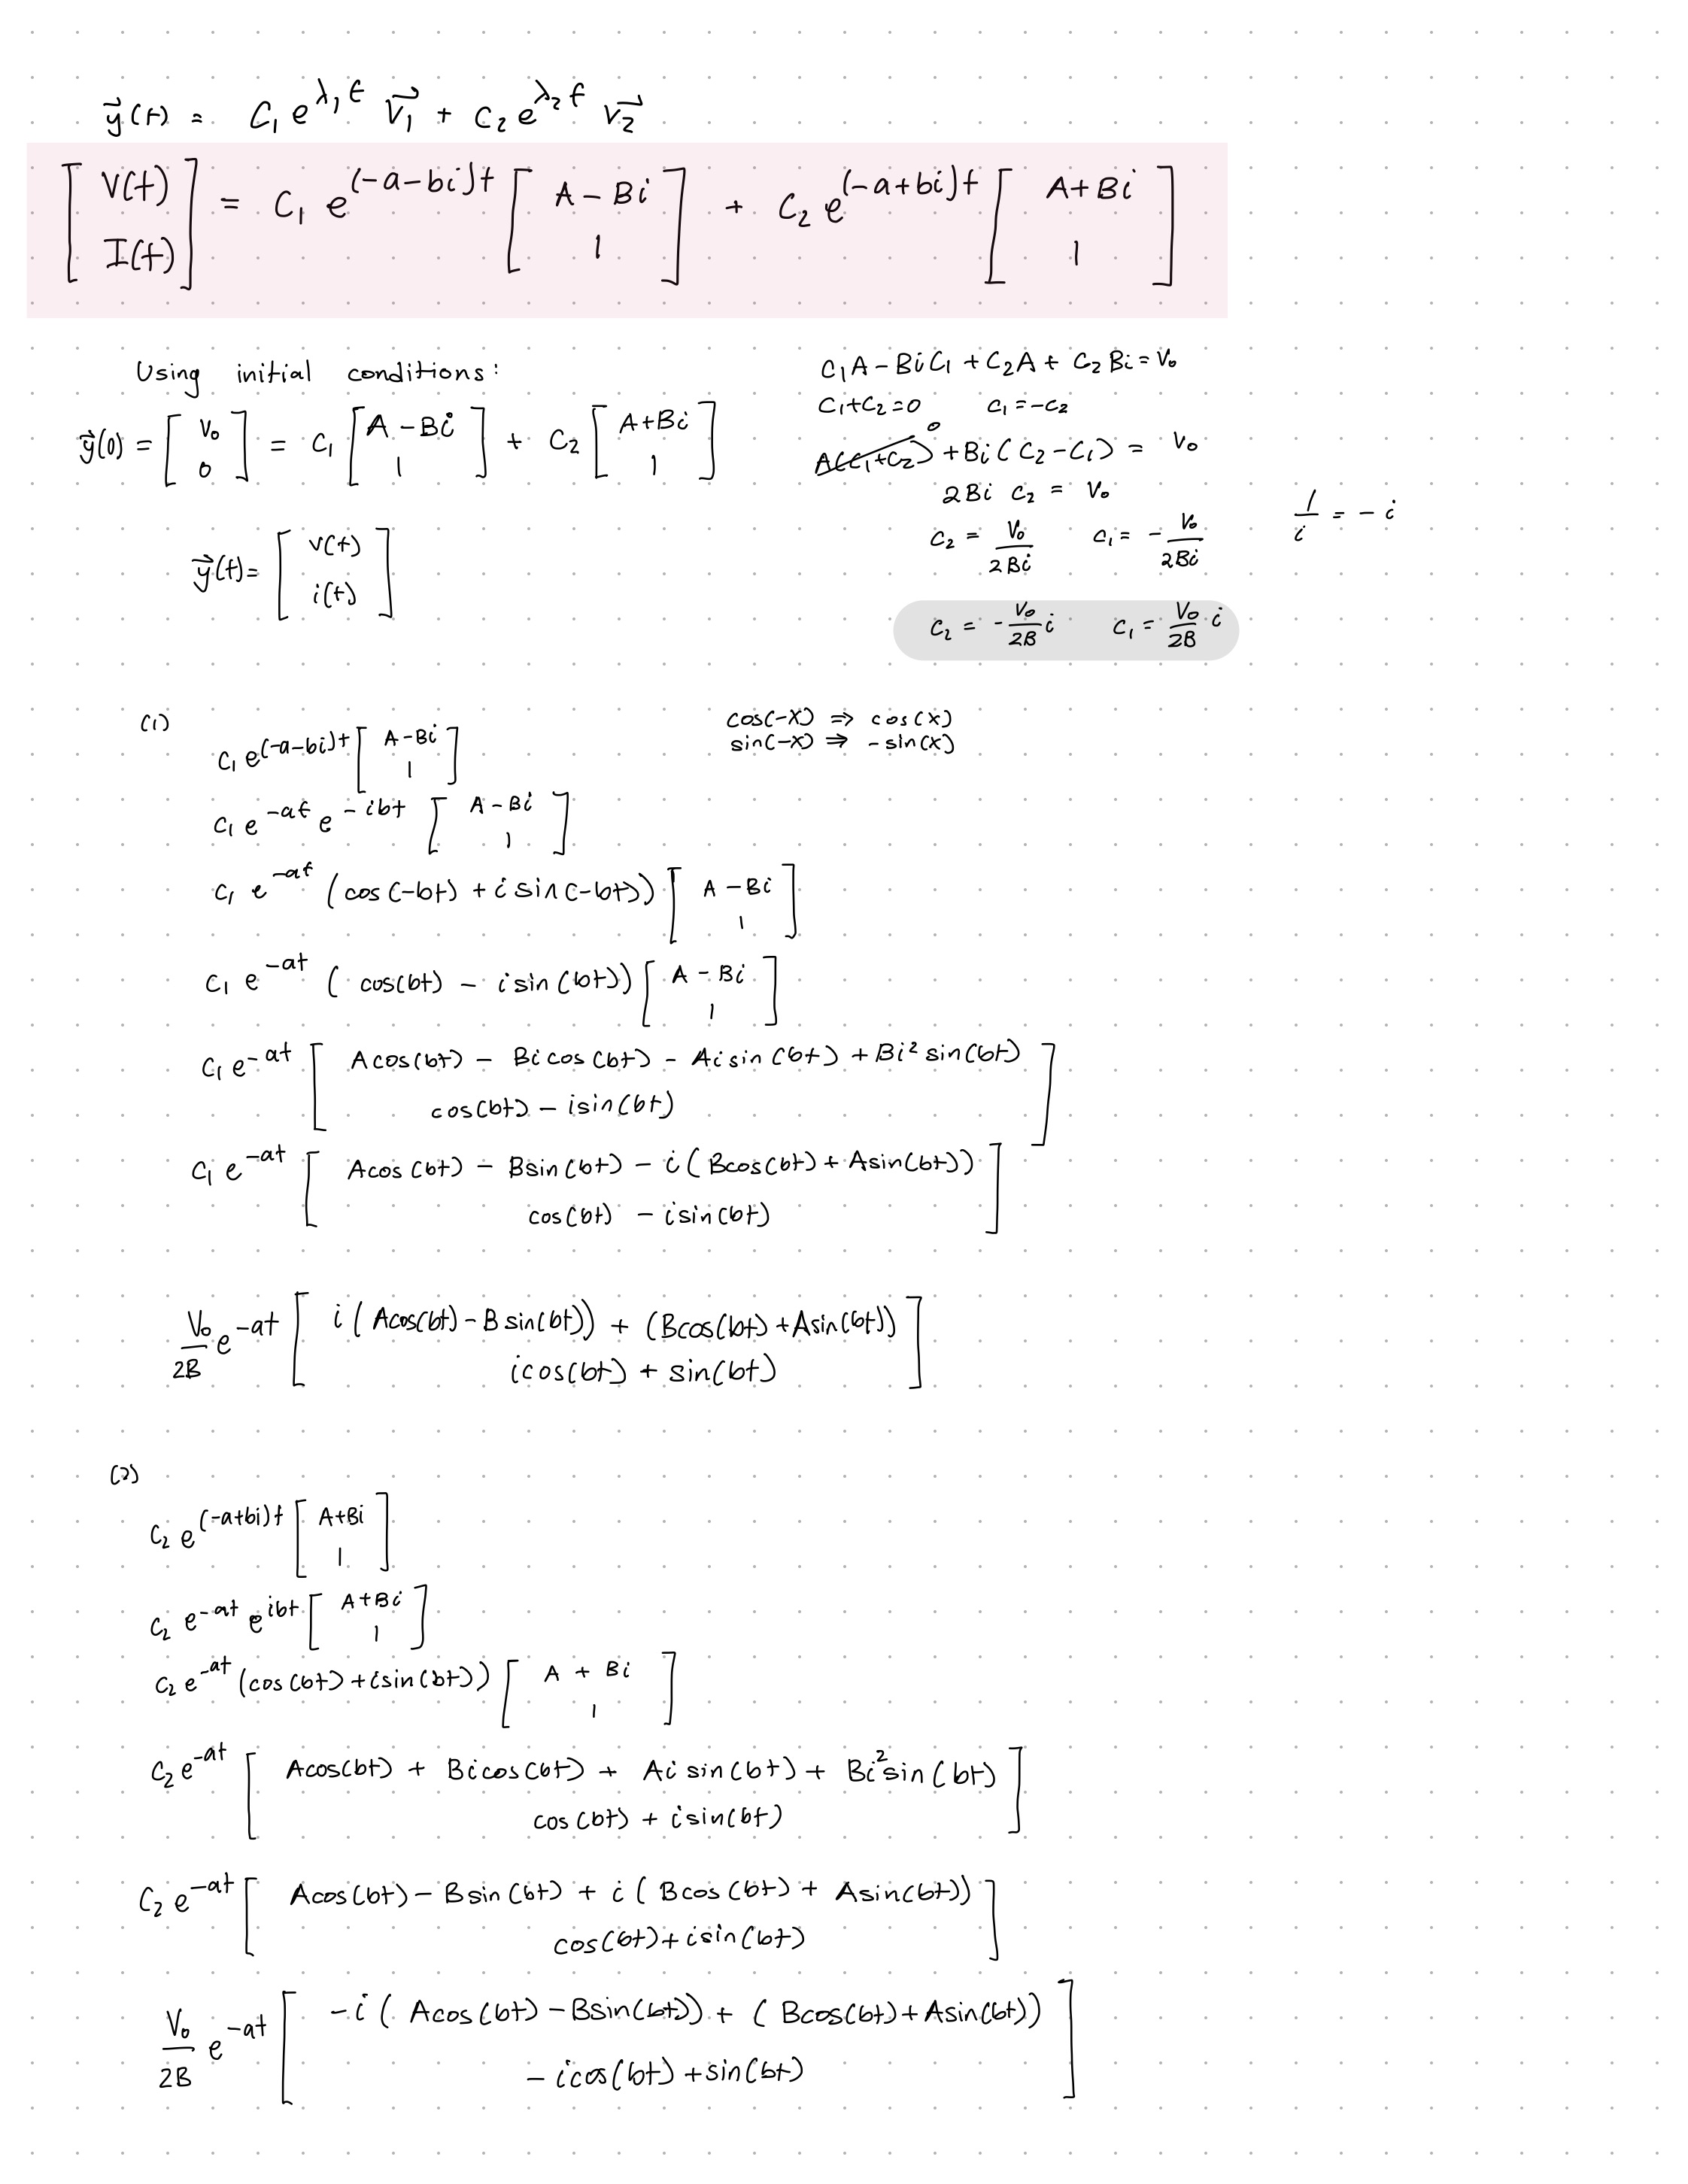 y⃗(t) = C₁ e^{λ₁t} v⃗₁ + C₂ e^{λ₂t} v⃗₂
[V(t); I(t)] = C₁ e^{(-a-bi)t} [A - Bi; 1] + C₂ e^{(-a+bi)t} [A + Bi; 1]
Using initial conditions:
y⃗(0) = [V₀; 0] = C₁ [A - Bi; 1] + C₂ [A+Bi; 1]
y⃗(t) = [v(t); i(t)]
C₁A - BiC₁ + C₂A + C₂Bi = V₀
C₁+C₂ = 0 C₁ = -C₂
A(C₁+C₂) 0 + Bi(C₂-C₁) = V₀
2Bi C₂ = V₀
C₂ = V₀/2Bi C₁ = - V₀/2Bi
1/i = - i
C₂ = - V₀/2B i C₁ = V₀/2B i
(1)
C₁ e^{(-a-bi)t} [A - Bi; 1]
cos(-x) ⇒ cos(x)
sin(-x) ⇒ -sin(x)
C₁ e^{-at} e^{-ibt} [A - Bi; 1]
C₁ e^{-at} (cos(-bt) + i sin(-bt)) [A - Bi; 1]
C₁ e^{-at} (cos(bt) - isin(bt)) [A - Bi; 1]
C₁ e^{-at} [Acos(bt) - Bicos(bt) - Aisin(bt) + Bi²sin(bt); cos(bt) - isin(bt)]
C₁ e^{-at} [Acos(bt) - Bsin(bt) - i(Bcos(bt) + Asin(bt)); cos(bt) - isin(bt)]
V₀/2B e^{-at} [i(Acos(bt) - Bsin(bt)) + (Bcos(bt) + Asin(bt)); icos(bt) + sin(bt)]
(2)
C₂ e^{(-a+bi)t} [A+Bi; 1]
C₂ e^{-at} e^{ibt} [A+Bi; 1]
C₂ e^{-at} (cos(bt) + isin(bt)) [A + Bi; 1]
C₂ e^{-at} [Acos(bt) + Bicos(bt) + Aisin(bt) + Bi²sin(bt); cos(bt) + isin(bt)]
C₂ e^{-at} [Acos(bt) - Bsin(bt) + i(Bcos(bt) + Asin(bt)); cos(bt) + isin(bt)]
V₀/2B e^{-at} [-i(Acos(bt) - Bsin(bt)) + (Bcos(bt) + Asin(bt)); - icos(bt) + sin(bt)]